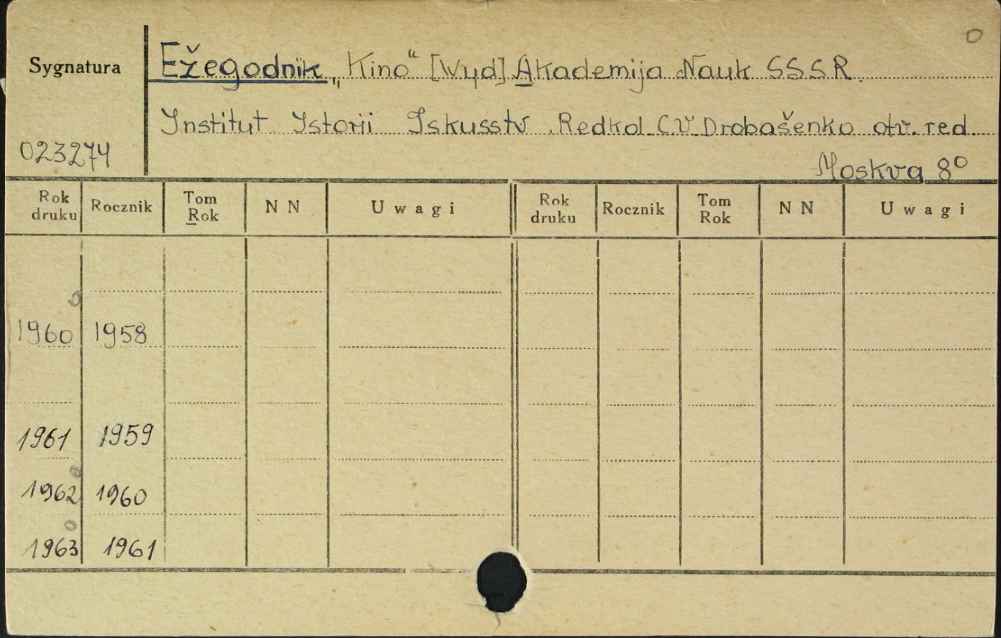 Sygnatura
Ežegodnik „Kino" [Wyd] Akademija Nauk SSSR.
Institut Istorii Iskusstv. Redkol. S.V. Drobašenko otv. red.
023274
Moskva 8°
Rok druku Rocznik Tom Rok N N Uwagi Rok druku Rocznik Tom Rok N N Uwagi
1960 1958
1961 1959
1962 1960
1963 1961